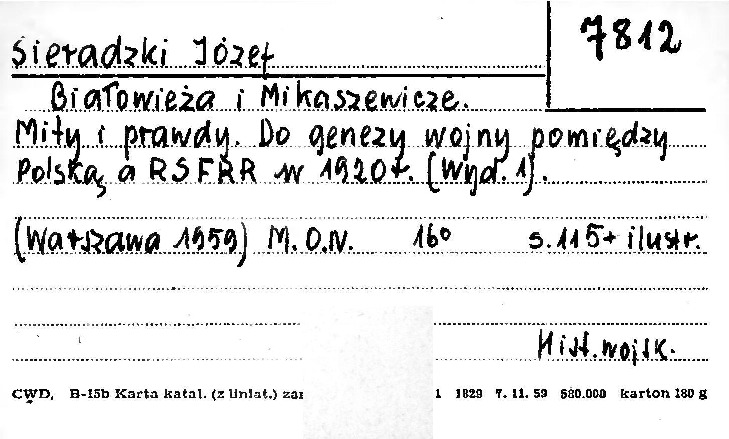 7812
Sieradzki Józef
Białowieża i Mikaszewicze.
Mity i prawdy. Do genezy wojny pomiędzy
Polską a RSFRR w 1920r. (Wyd. 1).
(Warszawa 1959) M.O.N. 16° s. 115 + ilustr.
Hist. wojsk.
CWD, B-15b Karta katal. (z liniat.) 1829 7. 11. 59 580.000 karton 180 g